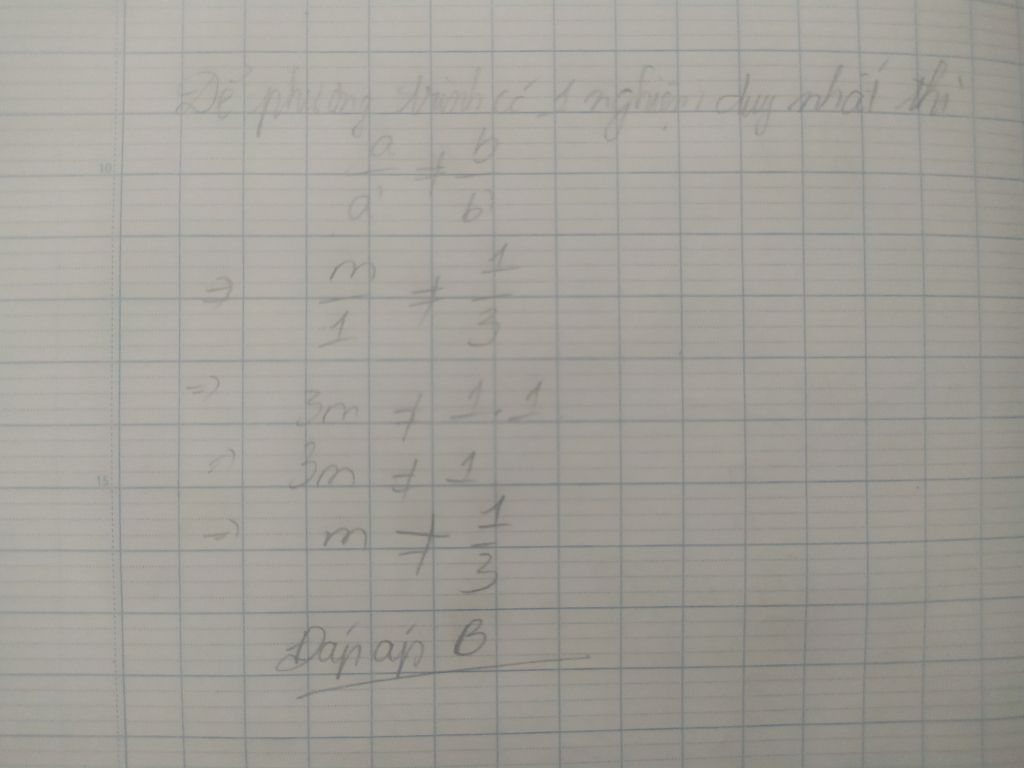 Để phương trình có 1 nghiệm duy nhất thì
a/a' ≠ b/b'
10
=> m/1 ≠ 1/3
=> 3m ≠ 1.1
=> 3m ≠ 1
15
=> m ≠ 1/3
Đáp áp B